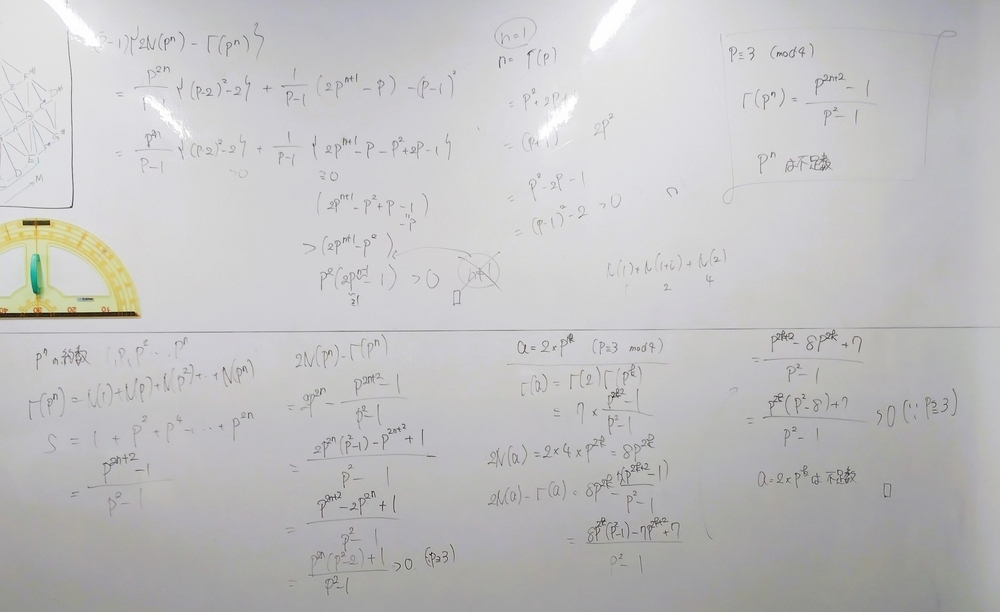 (p-1){2N(pⁿ) - Γ(pⁿ)}
= p²ⁿ/(p-1) {(p-2)²-2} + 1/(p-1) (2pⁿ⁺¹ - p) - (p-1)²
= pⁿ/(p-1) {(p-2)²-2} + 1/(p-1) {2pⁿ⁺¹ - p - p² + 2p - 1}
>0
≥0
(2pⁿ⁺¹ - p² + p - 1)
> (2pⁿ⁺¹ - p²)
p²(2pⁿ⁻¹ - 1) > 0
≥1
n≠1
□
n=1
Γ(p)
= p² + 2p
= (p+1)² 2p²
= p² - 2p - 1
= (p-1)² - 2 > 0
N(1) + N(1+i) + N(2)
1 2 4
p≡3 (mod 4)
Γ(pⁿ) = (p²ⁿ⁺² - 1)/(p² - 1)
pⁿ は不足数
pⁿの約数 1, p, p² … pⁿ
Γ(pⁿ) = N(1) + N(p) + N(p²) + … + N(pⁿ)
S = 1 + p² + p⁴ + … + p²ⁿ
= (p²ⁿ⁺² - 1)/(p² - 1)
2N(pⁿ) - Γ(pⁿ)
= 2p²ⁿ - (p²ⁿ⁺² - 1)/(p² - 1)
= (2p²ⁿ(p²-1) - p²ⁿ⁺² + 1)/(p² - 1)
= (p²ⁿ⁺² - 2p²ⁿ + 1)/(p² - 1)
= (p²ⁿ(p²-2) + 1)/(p²-1) > 0 (p≥3)
a = 2×pᵏ (p≡3 mod 4)
Γ(a) = Γ(2)Γ(pᵏ)
= 7 × (p²ᵏ⁺² - 1)/(p² - 1)
2N(a) = 2×4×p²ᵏ = 8p²ᵏ
2N(a) - Γ(a) = 8p²ᵏ - 7(p²ᵏ⁺² - 1)/(p² - 1)
= (8p²ᵏ(p²-1) - 7p²ᵏ⁺² + 7)/(p² - 1)
= (p²ᵏ⁺² - 8p²ᵏ + 7)/(p² - 1)
= (p²ᵏ(p²-8) + 7)/(p² - 1) > 0 (∵ p≥3)
a = 2×pᵏ は不足数
□